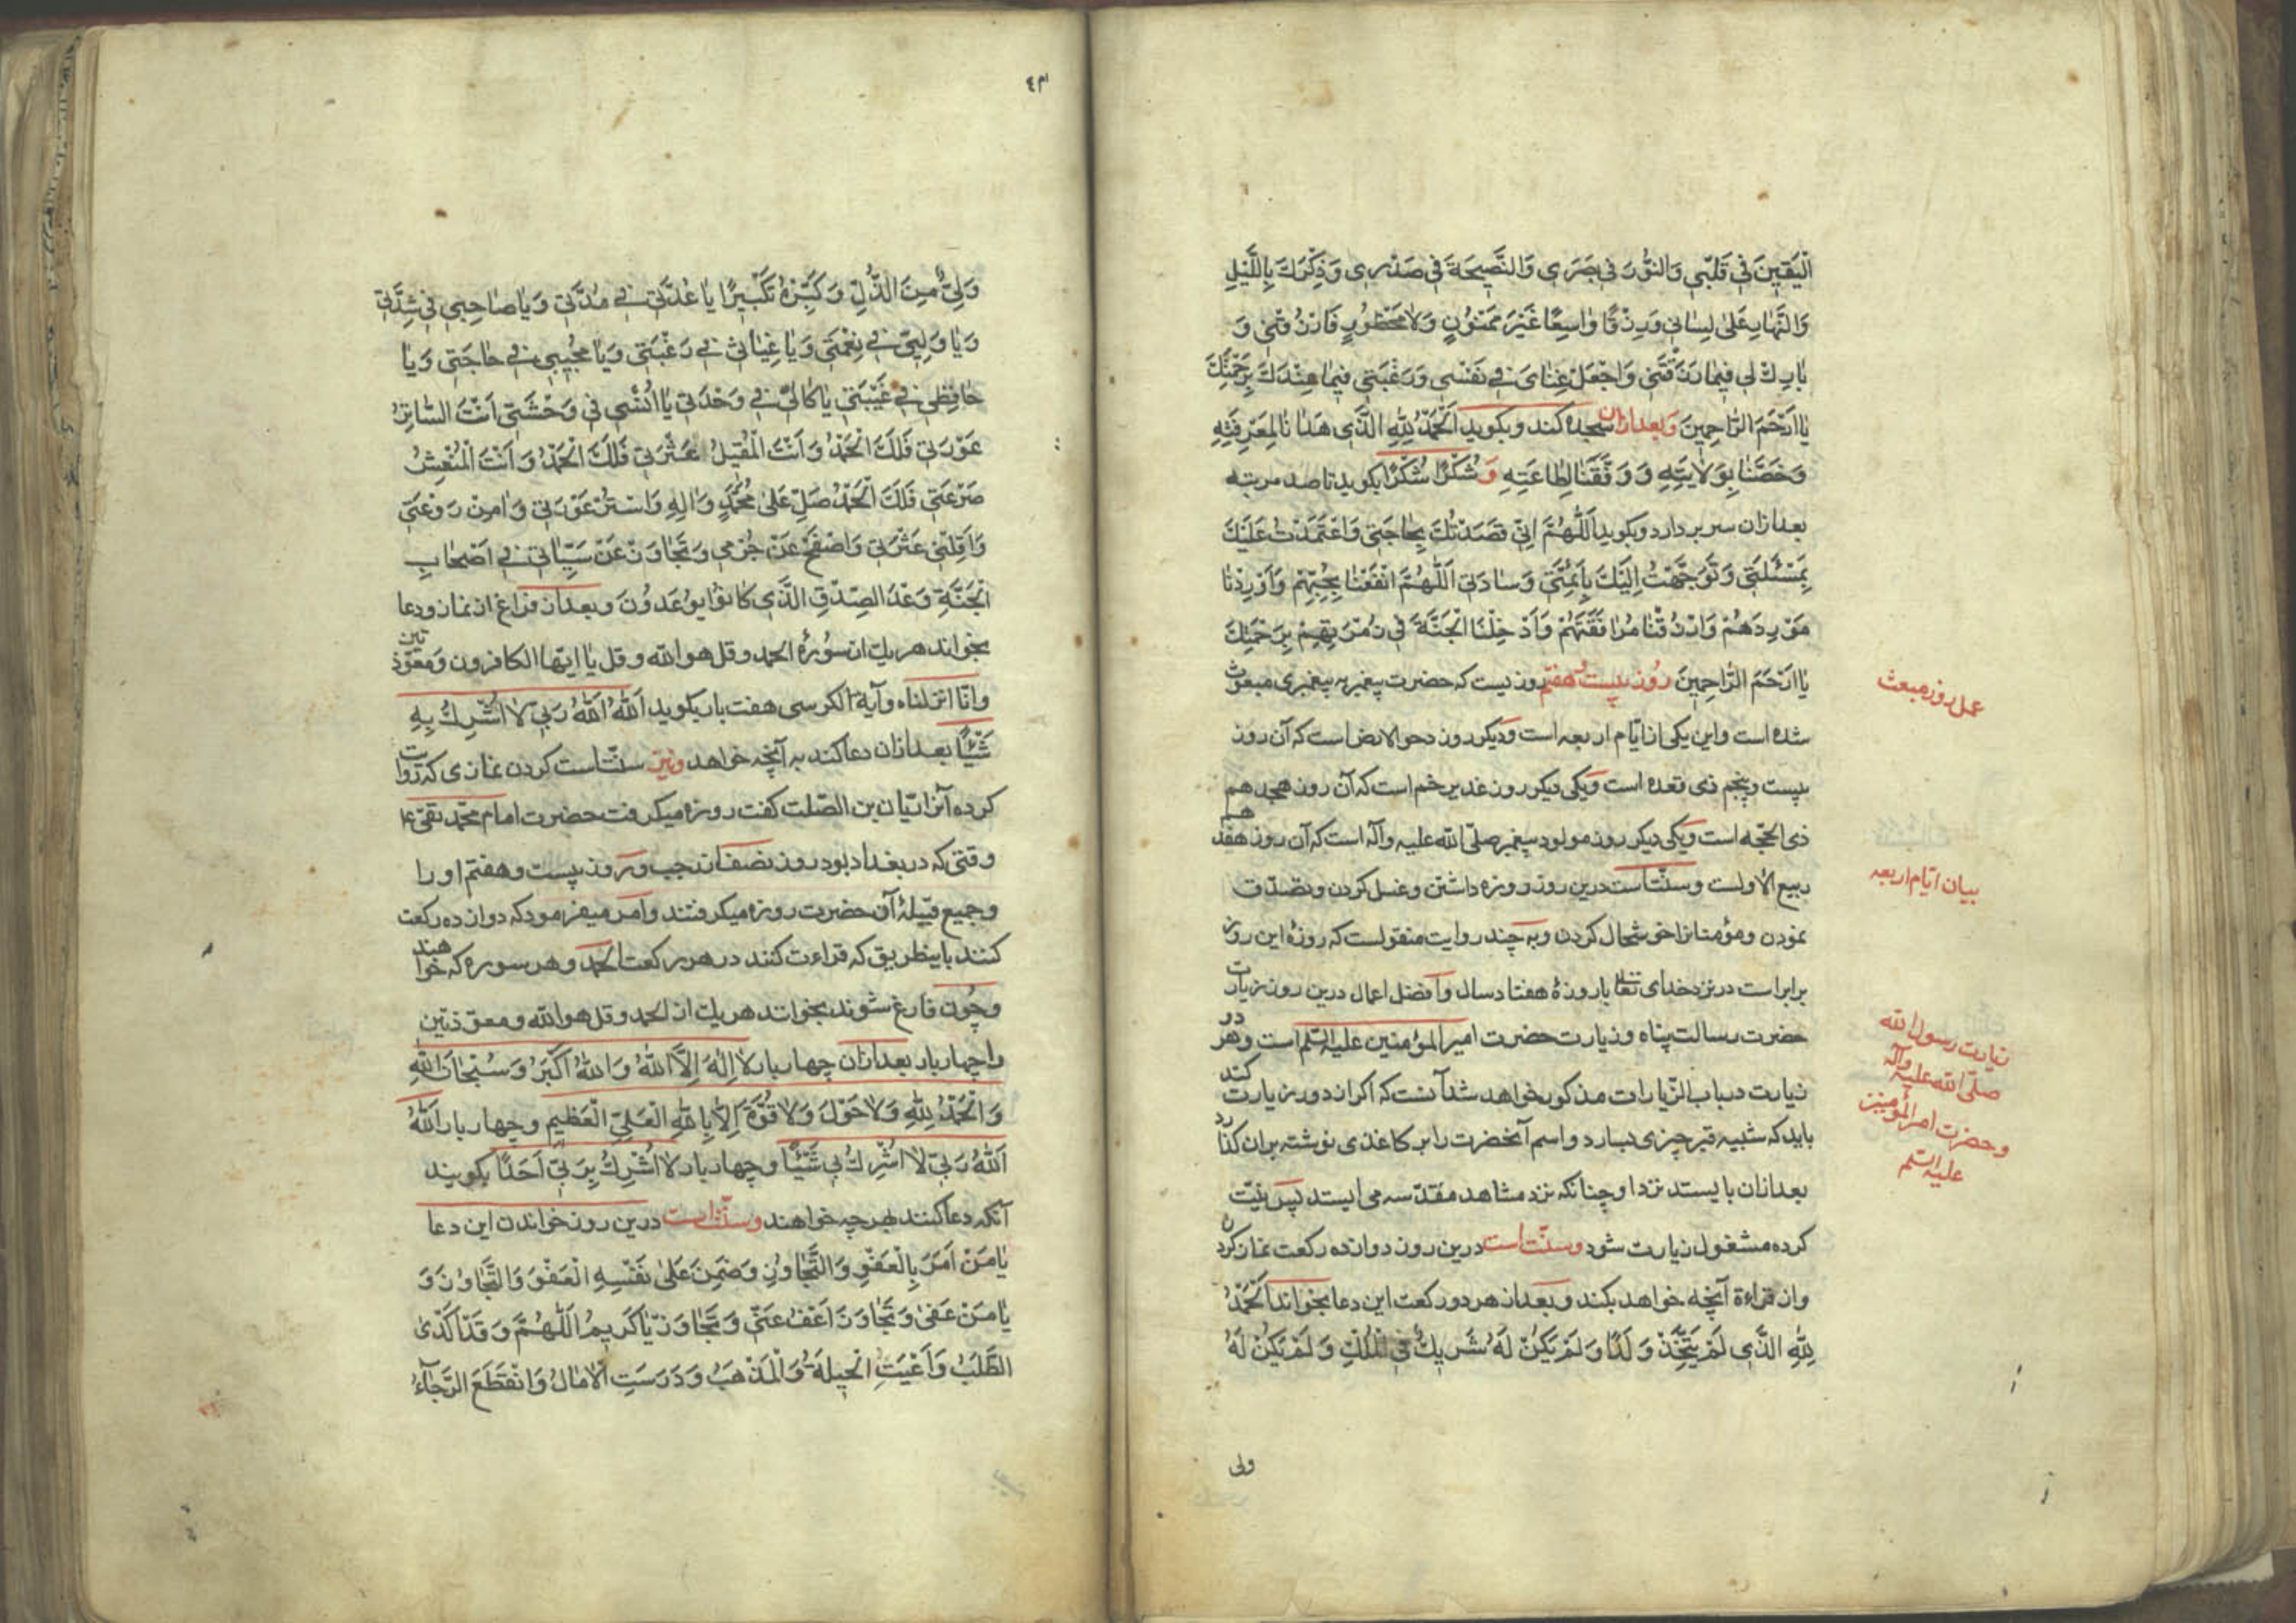 الْیَقینَ فی قَلْبی وَالنُّورَ فی بَصَری وَالنَّصیحَةَ فی صَدْری وَذِکْرَكَ بِاللَّیْلِ
وَالنَّهارِ عَلیٰ لِسانی وَرِزْقًا واسِعًا غَیْرَ مَمْنُونٍ وَلا مَحْظُورٍ فَارْزُقْنی وَ
بارِكْ لی فیما رَزَقْتَنی وَاجْعَلْ غِنایَ فی نَفْسی وَرَغْبَتی فیما عِنْدَكَ بِرَحْمَتِكَ
یا اَرْحَمَ الرّاحِمینَ وبعد ازان سجده کند و بکوید اَلْحَمْدُ لِلّٰهِ الَّذی هَدانا لِمَعْرِفَتِهِ
وَخَصَّنا بِوَلایَتِهِ وَوَفَّقَنا لِطاعَتِهِ وَ شُکْرًا شُکْرًا بکوید تا صد مرتبه
بعد ازان سر بر دارد و بکوید اَللّٰهُمَّ اِنّی قَصَدْتُكَ بِحاجَتی وَاعْتَمَدْتُ عَلَیْكَ
بِمَسْئَلَتی وَتَوَجَّهْتُ اِلَیْكَ بِاَئِمَّتی وَسادَتی اَللّٰهُمَّ انْفَعْنا بِحُبِّهِمْ وَاَوْرِدْنا
مَوْرِدَهُمْ وَارْزُقْنا مُرافَقَتَهُمْ وَاَدْخِلْنَا الْجَنَّةَ فی زُمْرَتِهِمْ بِرَحْمَتِكَ
یا اَرْحَمَ الرّاحِمینَ روز بیست و هفتم روزیست که حضرت پیغمبر به پیغمبری مبعوث
عمل روز مبعث
شده است و این یکی از ایّام اربعه است ودیکر روز دحو الارض است که آن روز
بیست و پنجم ذی قعده است ویکی دیکر روز غدیر خم است که آن روز هیجدهم
ذی الحجّه است ویکی دیکر روز مولود پیغمبر صلّی الله علیه وآله است که آن روز هفدهم
ربیع الاولست وسنّت است درین روز روزه داشتن و غسل کردن و تصدّق
بیان ایّام اربعه
نمودن و مؤمنانرا خوشحال کردن وبه چند روایت منقولست که روزهٔ این روز
برابر است در نزد خدای تعالی با روزهٔ هفتاد سال وافضل اعمال درین روز زیارت
حضرت رسالت پناه و زیارت حضرت امیر المؤمنین علیه السّلم است و هر در
زیارت رسول الله
صلّی الله علیه وآله
وحضرت امیر المؤمنین
علیه السّلم
زیارت در باب الزّیارات مذکور خواهد شد آنست که اکر از دور زیارت کند
باید که شبیه قبر چیزی بسازد و اسم آنحضرت را بر کاغذی نوشته بران کذارد
بعد ازان بایستد نزد او چنانکه نزد مشاهد مقدّسه می ایستد پس نیّت
کرده مشغول زیارت شود وسنّت است درین روز دوازده رکعت نماز کردن
واز قراءة آنچه خواهد بکند وبعد از هر دو رکعت این دعا بخواند اَلْحَمْدُ
لِلّٰهِ الَّذی لَمْ یَتَّخِذْ وَلَدًا وَلَمْ یَکُنْ لَهُ شَریكٌ فِی الْمُلْكِ وَلَمْ یَکُنْ لَهُ
ولی
٤٣
وَلِیٌّ مِنَ الذُّلِّ وَکَبِّرْهُ تَکْبیرًا یا عُدَّتی فی مُدَّتی وَیا صاحِبی فی شِدَّتی
وَیا وَلِیّی فی نِعْمَتی وَیا غِیاثی فی رَغْبَتی وَیا مُجیبی فی حاجَتی وَیا
حافِظی فی غَیْبَتی یا کالِئی فی وَحْدَتی یا اُنْسی فی وَحْشَتی اَنْتَ السّاتِرُ
عَوْرَتی فَلَكَ الْحَمْدُ وَاَنْتَ الْمُقیلُ عَثْرَتی فَلَكَ الْحَمْدُ وَاَنْتَ الْمُنْعِشُ
صَرْعَتی فَلَكَ الْحَمْدُ صَلِّ عَلیٰ مُحَمَّدٍ وَالِهِ وَاسْتُرْ عَوْرَتی وَامِنْ رَوْعَتی
وَاَقِلْنی عَثْرَتی وَاصْفَحْ عَنْ جُرْمی وَتَجاوَزْ عَنْ سَیِّئاتی فی اَصْحابِ
الْجَنَّةِ وَعْدَ الصِّدْقِ الَّذی کانُوا یُوعَدُونَ وبعد از فراغ از نماز و دعا
بخواند هریك از سورهٔ الحمد و قل هو الله و قل یا ایّها الکافرون و معوّذتین
وانّا انزلناه وآیة الکرسی هفت بار بکوید اَللّٰهُ اَللّٰهُ رَبّی لا اُشْرِكُ بِهِ
شَیْئًا بعد ازان دعا کند به آنچه خواهد ونیز سنّت است کردن نمازی که روایت
کرده آنرا ریّان بن الصّلت کفت روزه میکرفت حضرت امام محمّد تقی ع
وقتی که در بغداد بود روز نصف از رجب و روز بیست و هفتم او را
وجمیع قبیلهٔ آن حضرت روزه میکرفتند وامر میفرمود که دوازده رکعت
کنند باینطریق که قراءت کنند در هر رکعت الحمد و هر سوره که خواهند
وچون فارغ شوند بخوانند هریك از الحمد و قل هو الله و معوّذتین
را چهار بار بعد ازان چهار بار لا اِلٰهَ اِلَّا اللّٰهُ وَاللّٰهُ اَکْبَرُ وَسُبْحانَ اللّٰهِ
وَالْحَمْدُ لِلّٰهِ وَلا حَوْلَ وَلا قُوَّةَ اِلّا بِاللّٰهِ الْعَلِیِّ الْعَظیمِ و چهار بار اَللّٰهُ
اَللّٰهُ رَبّی لا اُشْرِكُ بی شَیْئًا و چهار بار لا اُشْرِكُ بِرَبّی اَحَدًا بکویند
آنکه دعا کنند بهرچه خواهند وسنّت است درین روز خواندن این دعا
یا مَنْ اَمَرَ بِالْعَفْوِ وَالتَّجاوُزِ وَضَمِنَ عَلیٰ نَفْسِهِ الْعَفْوَ وَالتَّجاوُزَ وَ
یا مَنْ عَفیٰ وَتَجاوَزَ اَعْفُ عَنّی وَتَجاوَزْ یا کَریمُ اَللّٰهُمَّ وَقَدْ اَکْدَی
الطَّلَبُ وَاَعْیَتِ الْحیلَةُ وَالْمَذْهَبُ وَدَرَسَتِ الْامالُ وَانْقَطَعَ الرَّجآءُ